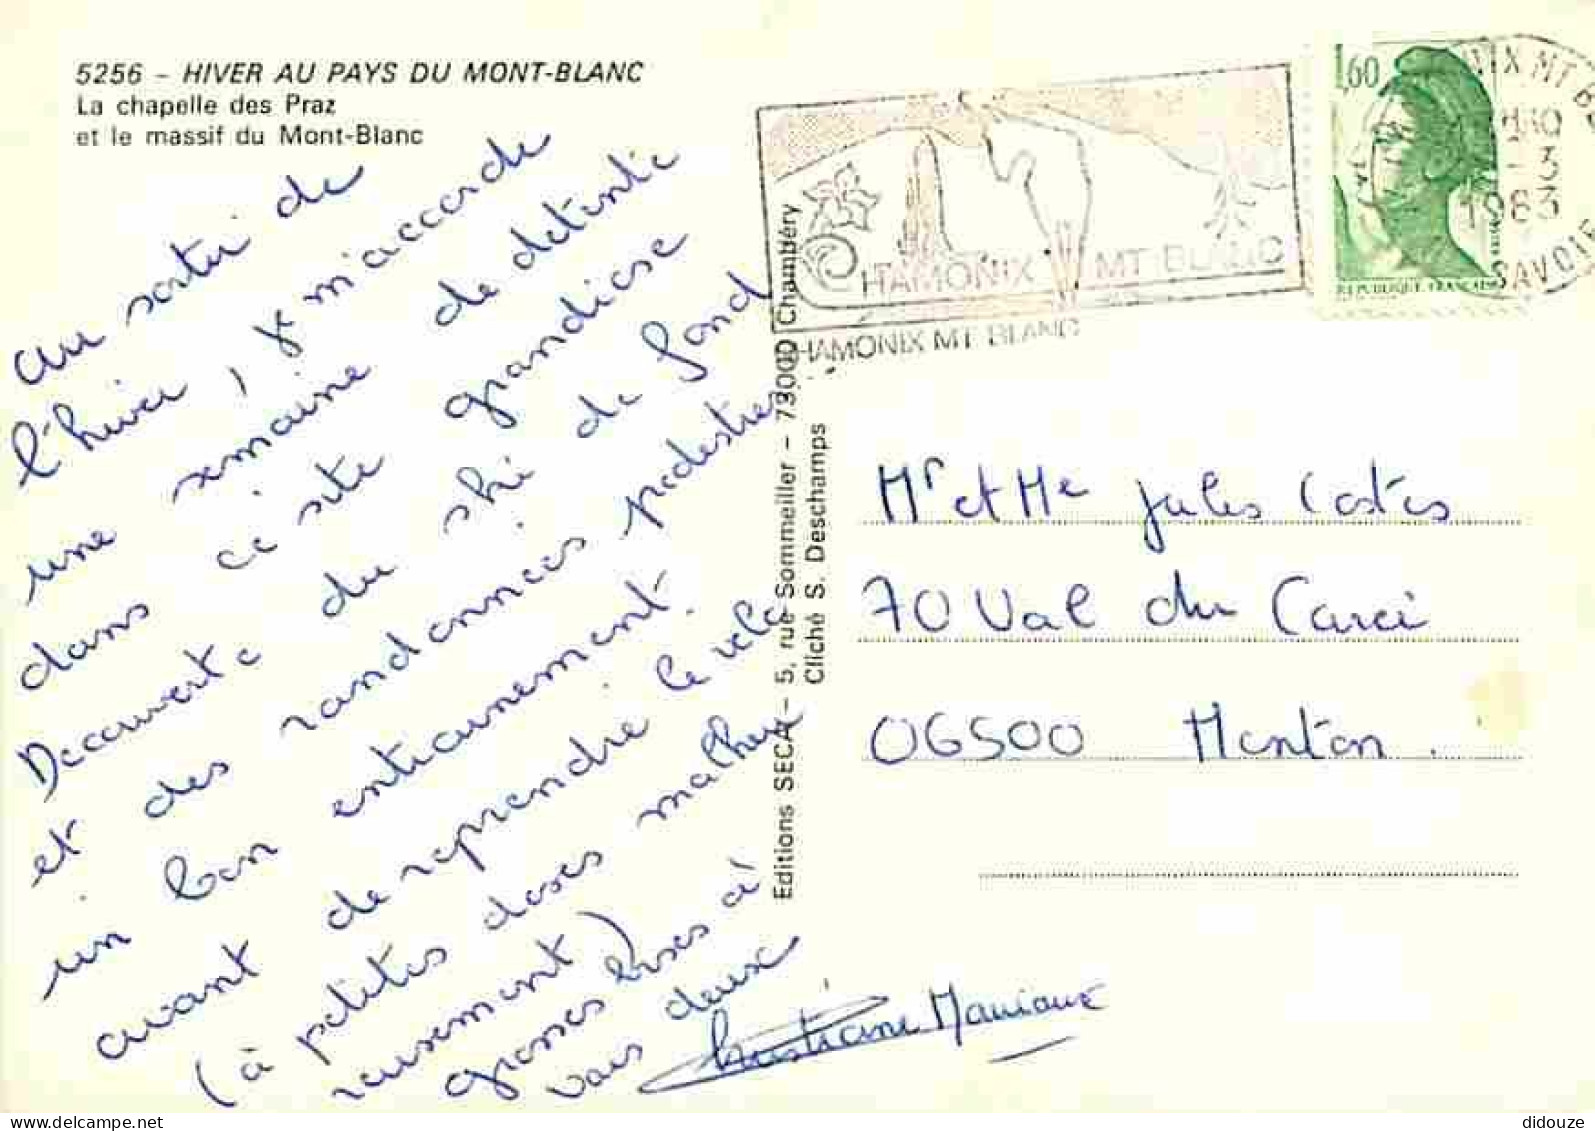 5256 - HIVER AU PAYS DU MONT-BLANC
La chapelle des Praz
et le massif du Mont-Blanc
au sortir de
l'hiver, je m'accorde
une semaine de détente
dans ce site grandiose
Découverte du ski de fond
et des randonnées pédestres
un bon entrainement
avant de reprendre le vélo
(à petites doses malheu
reusement)
grosses bises à
vous deux
Christiane
Editions SECA - 5, rue Sommeiller - 73000 Chambéry
Cliché S. Deschamps
CHAMONIX MT BLANC
HAMONIX MT BLANC
1,60
REPUBLIQUE FRANCAISE
NIX MT B
-3
1983
SAVOIE
Mr et Me Jules Costes
70 Val du Careï
06500 Menton.
didouze